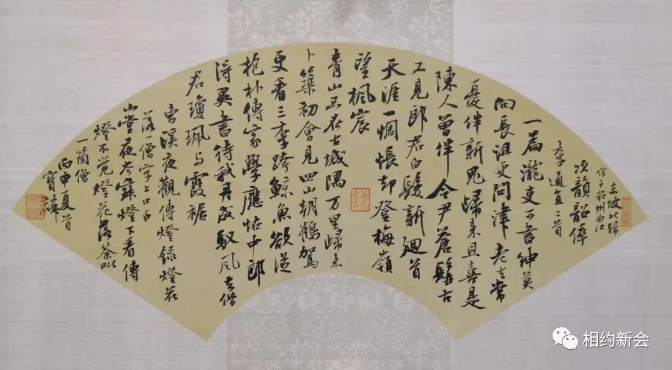 東坡北歸
作于韶州曲江
次韻韶倅
李通直二首
一篇瀧吏可書紳莫
向長沮更問津老去常
憂伴新鬼歸來且喜是
陳人曾伴令尹蒼髯古
又見郎君白髮新迴首
天涯一惆悵却登梅嶺
望楓宸
青山只在古城隅萬里歸來
卜築初會見四山朝鶴駕
更看三李跨鯨魚欲從
抱朴傳家學應怪中郎
得異書待我丹成馭風去借
君瓊珮与霞裾
曹溪夜觀傳燈錄燈花
落一僧字上口占
山堂夜岑寂燈下看傳
燈不覺燈花落荼毗
一箇僧
丙申夏首
相约新会